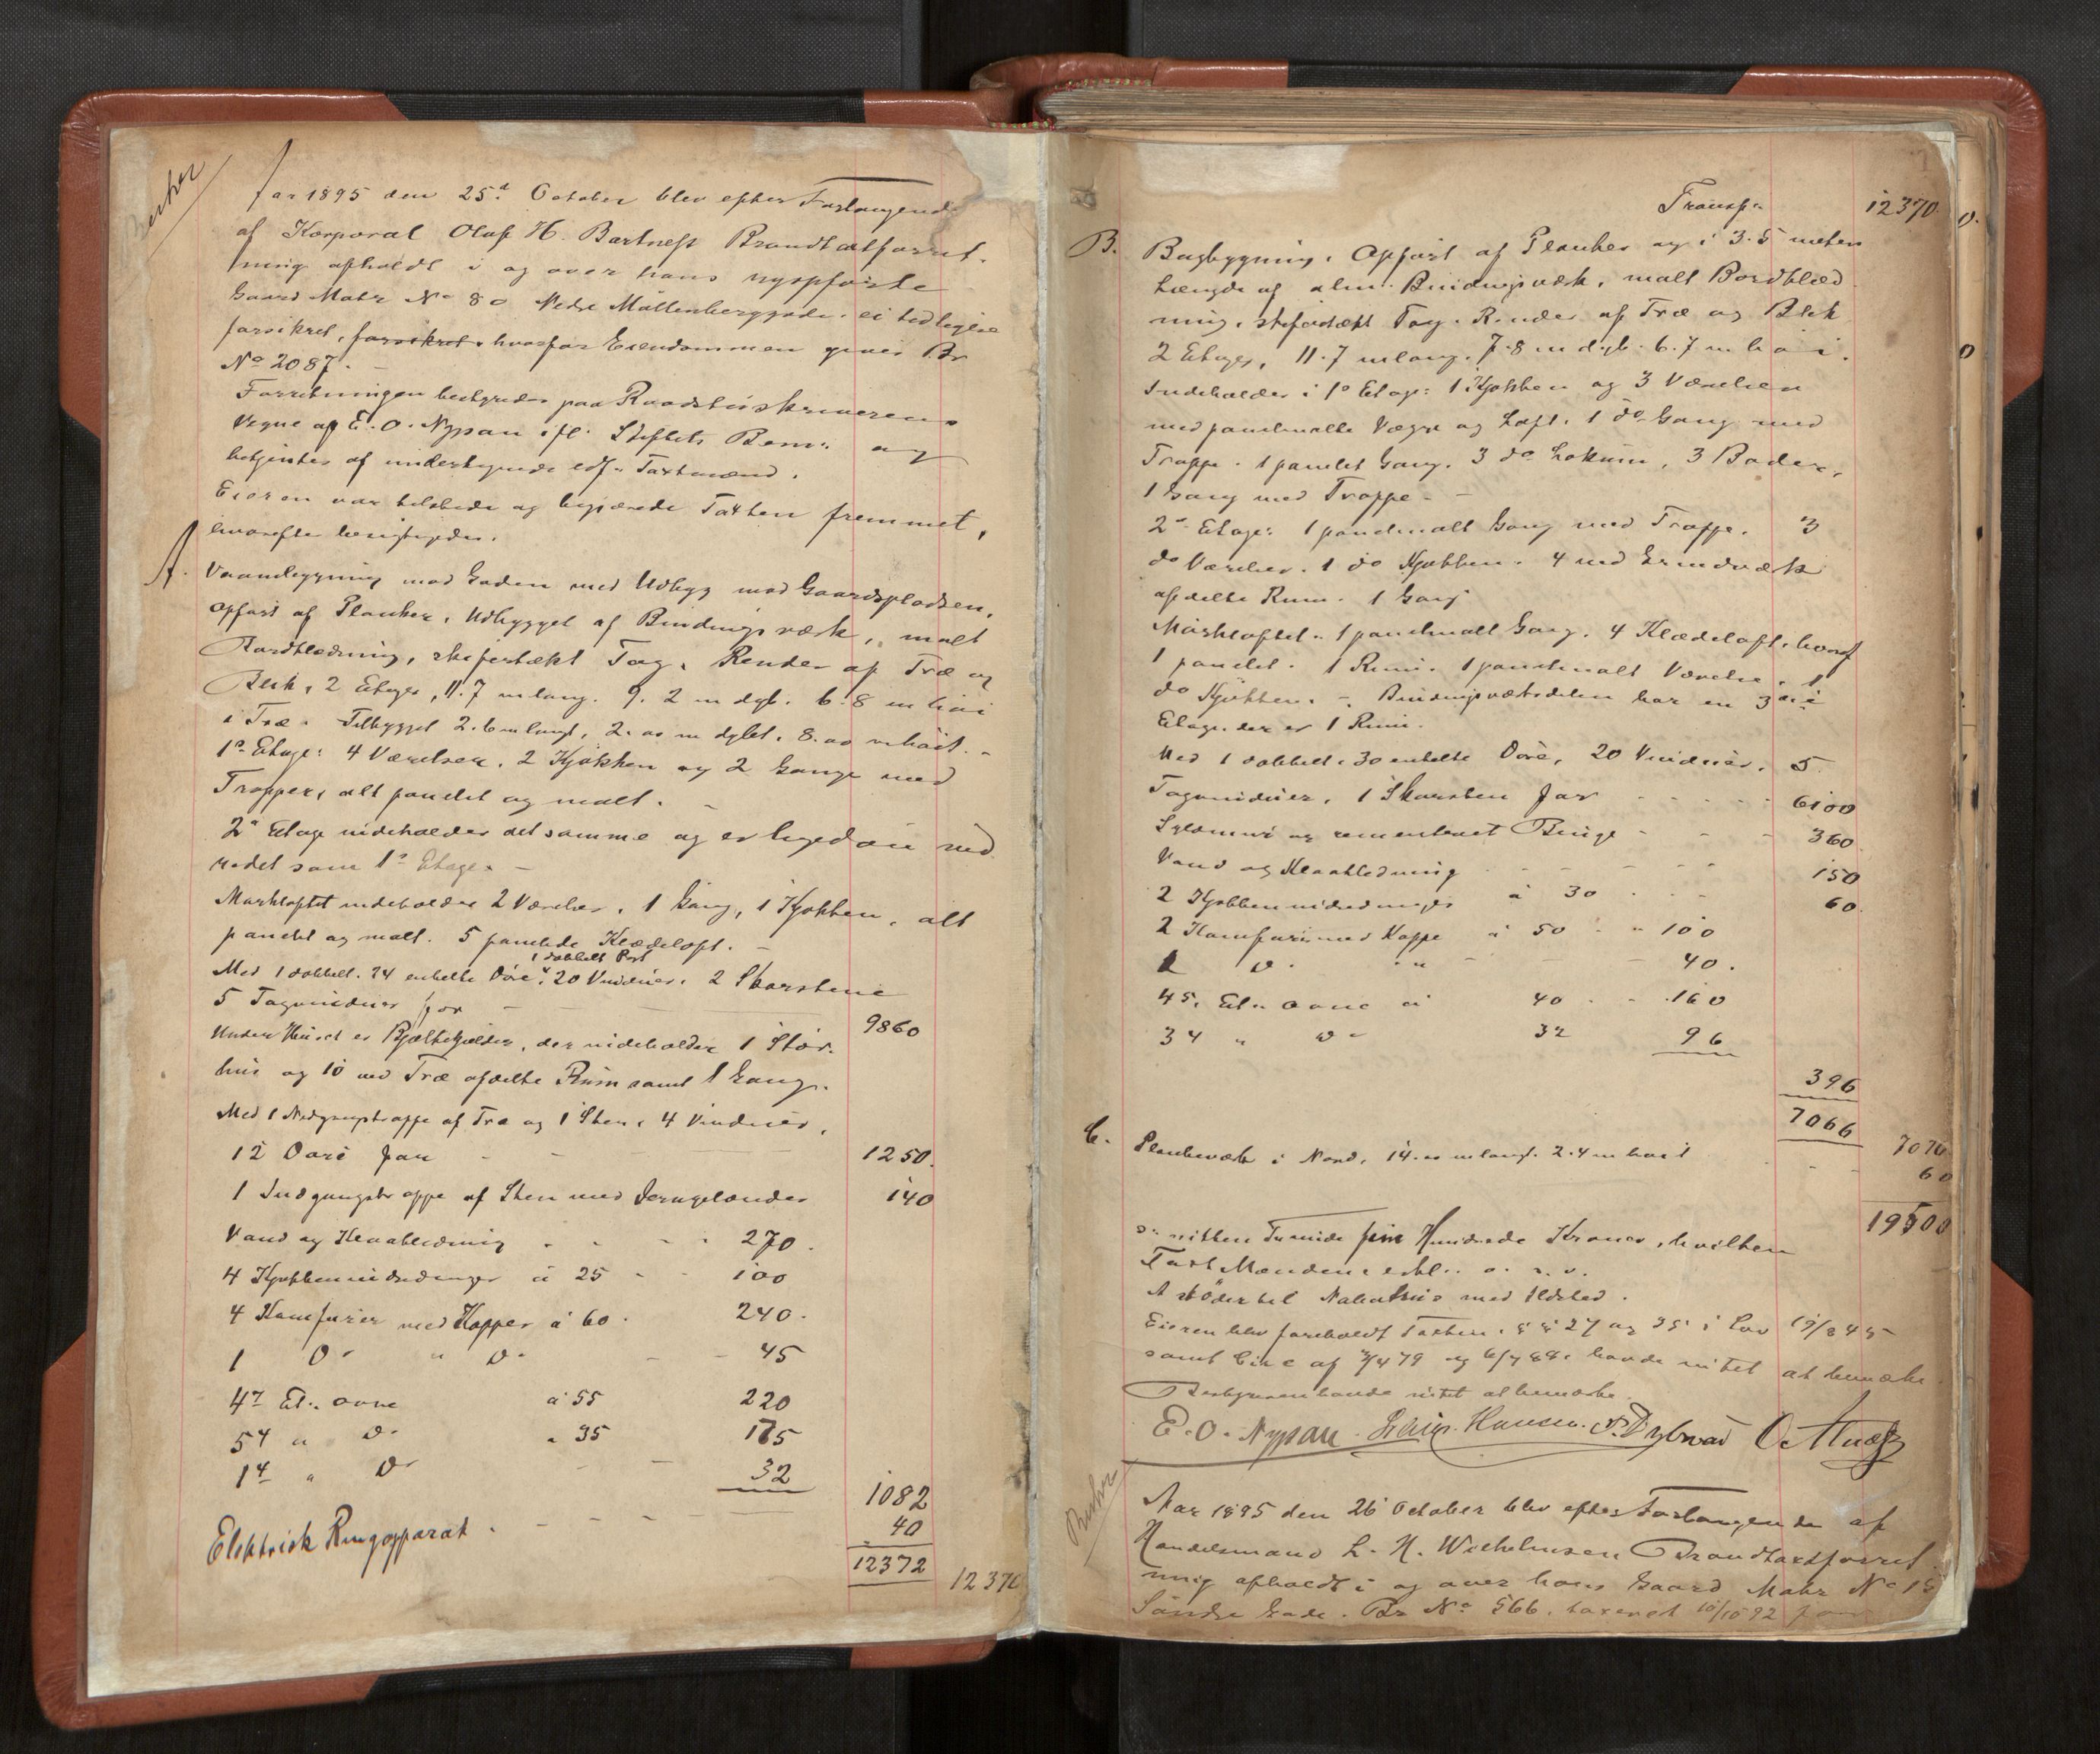 Becker
Aar 1895 den 25d October blev efter Forlangende
af Korporal Olaf H. Bartness Brandtaxtforret-
ning afholdt i og over hans nyopförte
Gaard Matr No 80 Nedre Möllenberggade. ei tidligere
forsikret, forsikret. hvorfor Eiendommen gives Br
No 2087. —
Forretningen bestyredes paa Raadstueskriverens
Vegne af E. O. Nypan ifl. Stiftets Bem: og
betjentes af undertegnede edsv. Taxtmænd.
Eieren var tilstede og begjærede Taxten fremmet,
hvorefter besigtigedes.
A. Vaaningsbygning mod Gaden med Udbyg mod Gaardspladsen,
opfört af Planker, Udbygget af Bindingsværk, malt
Bordklædning, skifertækt Tag. Render af Træ og
Blik, 2 Etager, 11.7 m lang. 9.2 m dyb. 6.8 m höi
i Træ. Tilbygget 2.6 m langt, 2.00 m dybt. 8.00 m höit. —
1e Etage: 4 Værelser. 2 Kjökken og 2 Gange med
Trapper, alt panelet og malt. —
2e Etage indeholder det samme og er ligedan ind
redet som 1e Etage. —
Mörkloftet indeholder 2 Værelser, 1 Gang, 1 Kjökken, alt
panelet og malt. 5 panelede Klædeloft. —
1 dobbelt Port
Med 1 dobbelt. 24 enkelte Döre, 20 Vinduer. 2 Skorstene
5 Tagvinduer for — 9860
Under Huset er Bjælkekjelder, der indeholder 1 Stör-
hus og 10 med Træ afdelte Rum samt 1 Gang.
Med 1 Nedgangstrappe af Træ og 1 Sten, 4 Vinduer,
12 Döre for — 1250.
1 Indgangstrappe af Sten med Jerngelænder 140
Vand og Kloakledning 270.
4 Kjökkenindredninger à 25 100
4 Komfurer med Kapper à 60. 240.
1 Do " Do 45
4 2 Et. ovne à 55 220
5 4 " Do " 35 175
1 4 " Do 32
1082
Elektrisk Ringapparat. 40
12372 12370
Transp. 12370.
B. Bagbygning. Opfört af Planker og i 3.5 meters
Længde af alm. Bindingsværk, malt Bordklæd
ning. skifertækt Tag. Render af Træ og Blik
2 Etager, 11.7 m lang. 7.8 m dyb. 6.7 m höi.
Indeholder i 1e Etage: 1 Kjökken og 3 Værelser
med panelmalte Vægge og Loft. 1 do Gang med
Trappe. 1 panelet Gang. 3 do Lokum, 3 Boder,
1 Gang med Trappe. —
2e Etage: 1 panelmalt Gang med Trappe. 3
do Værelser. 1 do Kjökken. 4 med Grindværk
afdelte Rum. 1 Gang
Mörkloftet. 1 panelmalt Gang. 4 Klædeloft, hvoraf
1 panelet. 1 Rum. 1 panelmalt Værelse. 1
do Kjökken. — Bindingsværksdelen har en 3die
Etage der er 1 Rum.
Med 1 dobbelt. 30 enkelte Döre, 20 Vinduer. 5
Tagvinduer. 1 Skorsten for 6100
Syldmur og cementeret Binge 360.
Vand og Kloakledning 150
2 Kjökkenindredninger à 30 60.
2 Komfurer med Kappe à 50 " 100
1 Do " 40.
4 5. Et. ovne à 40 160
3 4 " Do 32 96
396
7066 7070
C. Plankeværk i Nord, 14.00 m langt. 2.4 m höit 60
19500
o: nitten Tusinde fem Hundrede Kroner, hvilken
Taxt Mændene erkl. o. s. v.
A stöder til Nabohus med Ildsted.
Eieren blev foreholdt Taxten. §§ 27 og 35 i Lov 19/8 45
samt Circ af 2/4 79 og 6/7 88. havde intet at bemærke.
Bestyreren havde intet at bemærke.
E. O. Nypan. Hansen. Dybvad
Becker
Aar 1895 den 26 October blev efter Forlangende af
Handelsmand L. N. Wilhelmsen Brandtaxtforret
ning afholdt i og over hans Gaard Matr No 15
Söndre Gade. Br No 566. taxeret 10/10 92 for